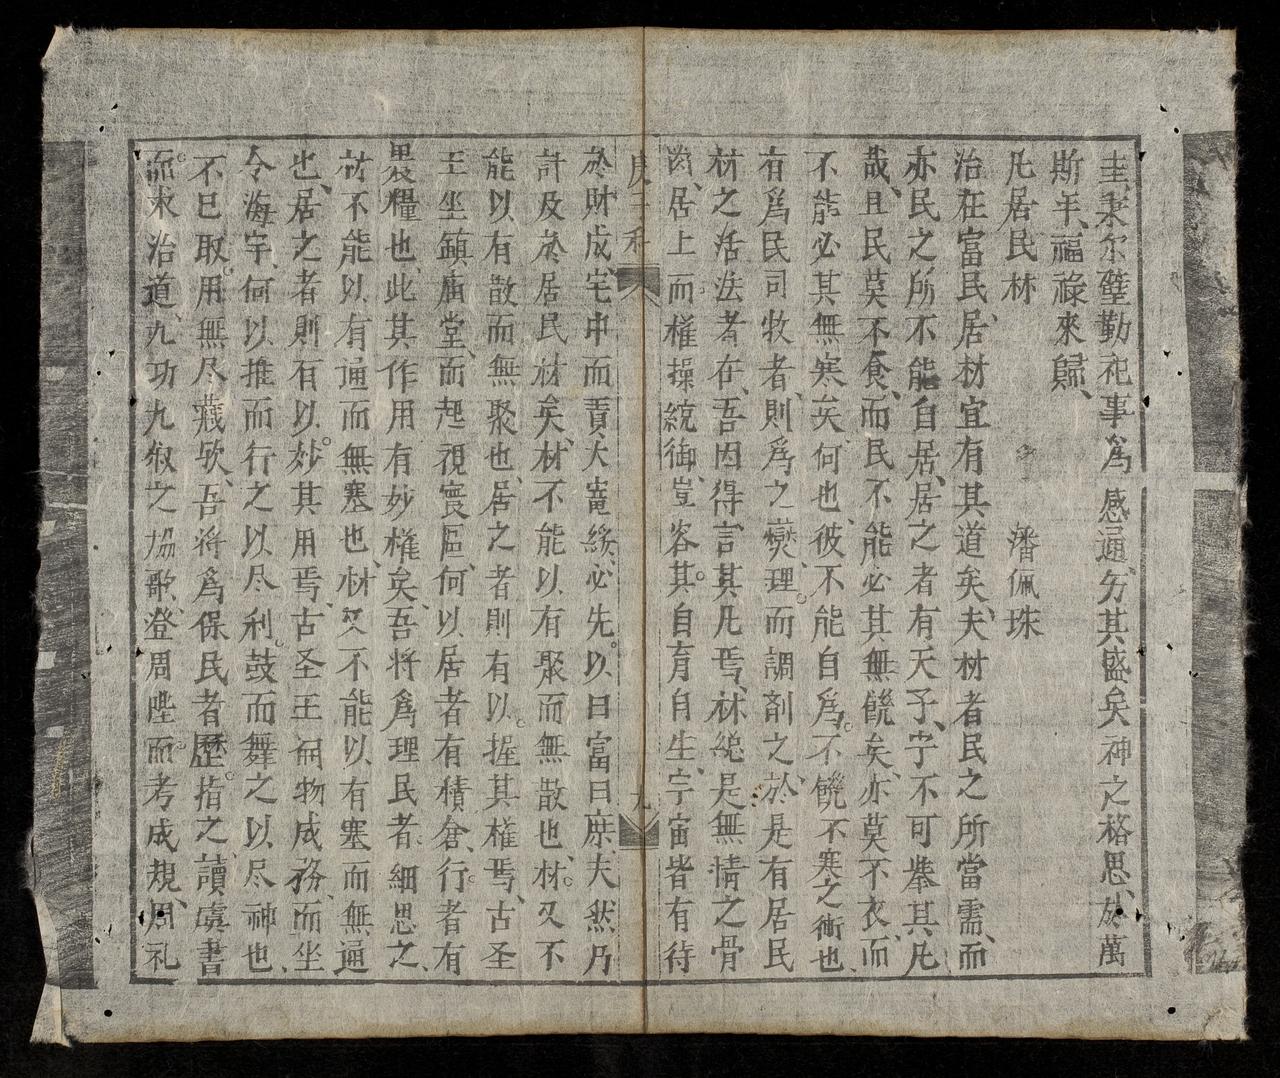 圭秉尔璧勤祀事爲 感通夯其盛矣神之格思、於萬
斯年、福祿來歸、
凡居民材 潘佩珠
治在富民、居材宜有其道矣、夫材者民之所當需、而
亦民之所不能自居、居之者有天子、宁不可挙其凡
哉、且民莫不食、而民不能必其無饑矣、亦莫不衣、而
不能必其無寒矣、何也、彼不能自爲。不饑不寒之術也、
有爲民司牧者、則爲之爕理。而調剤之、於是有居民
材之活法者在、吾因得言其凡焉、材縂是無情之骨
居上而權操統御、豈容其。自育自生、宇宙皆有待
庚子科 九
於財成、宅中而責大竜緣、必先。以曰富曰庶、夫然乃
計及於居民材矣、材不能以有聚而無散也、材。又不
能以有散而無聚也、居之者則有以。握其權焉、古圣
王坐鎮庙堂、而起視寰區、何以居者有積倉、行。者有
裹糧也、此其作用有妙權矣、吾將爲理民者細思之、
材不能以有通而無塞也、材又不能以有塞而無通
也、居之者則有以。妙其用焉、古圣王開物成務、而坐
令海宇、何以推而行之以尽利。鼓而舞之以尽神也、
不已取。用無尽藏欤、吾將爲保民者歷。指之、讀虞書
而求治道、九功九叙之协歌、登周陛而考成規、周礼